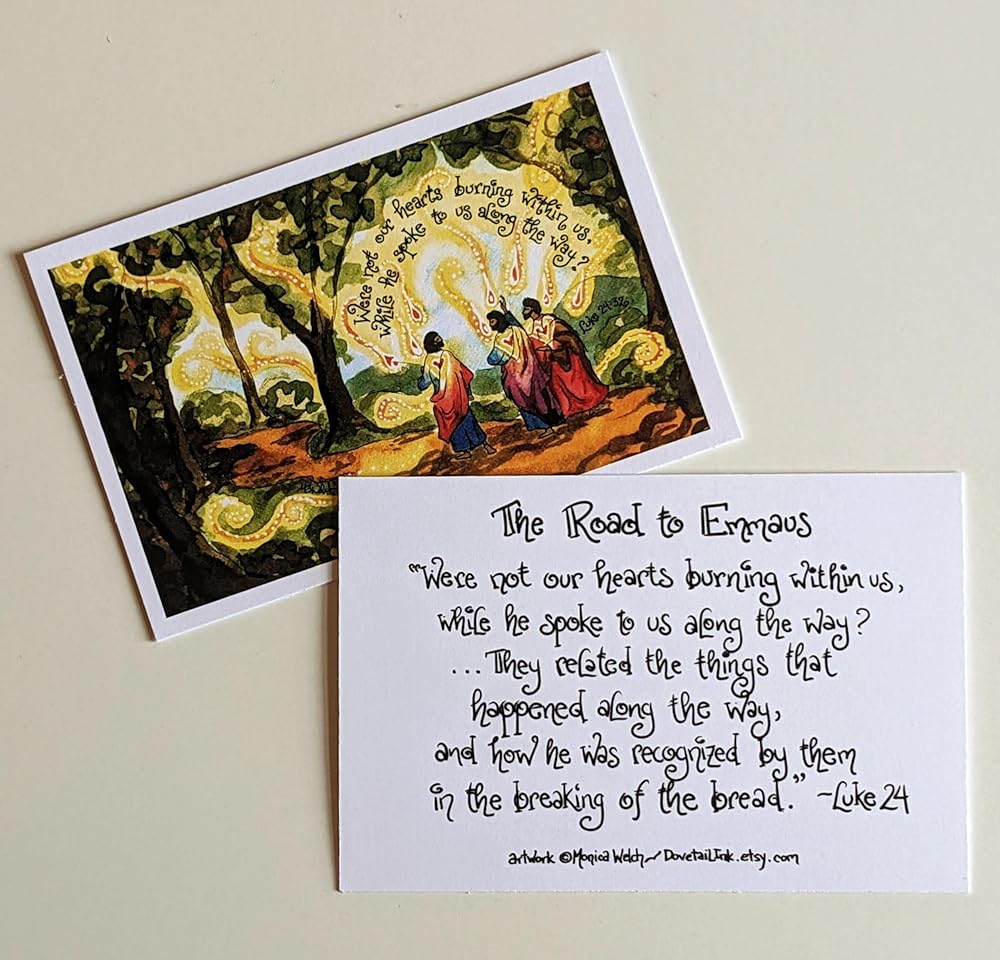 Were not our hearts burning within us,
while he spoke to us along the way?
Luke 24:32
The Road to Emmaus
"Were not our hearts burning within us,
while he spoke to us along the way?
...They related the things that
happened along the way,
and how he was recognized by them
in the breaking of the bread." ~Luke 24
artwork ©Monica Welch~DovetailInk.etsy.com